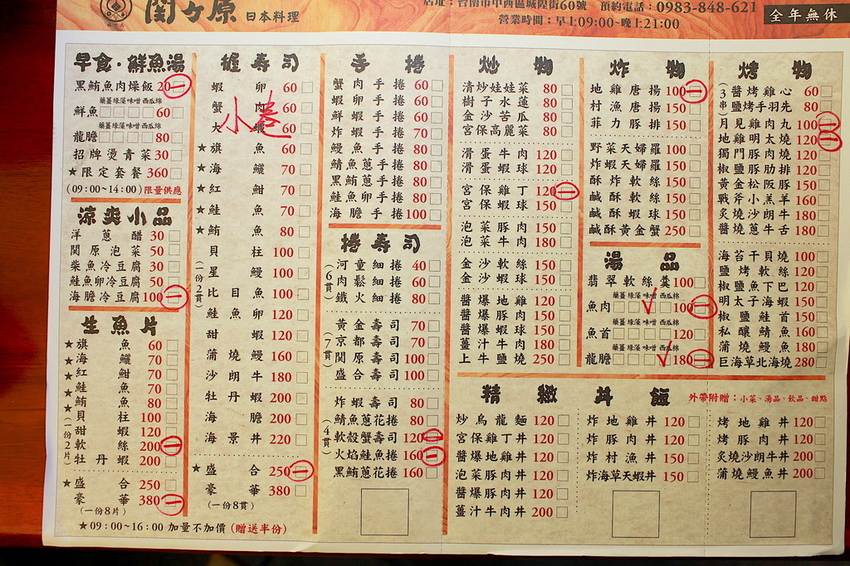 関ヶ原 日本料理
店址：台南市中西區城隍街60號 預約電話：0983-848-621
營業時間：早上09:00~晚上21:00
全年無休
早食・鮮魚湯
黑鮪魚肉燥飯 20 一
藥薑 綠藻 味噌 西瓜綿
鮮魚 60
藥薑 綠藻 味噌 西瓜綿
龍膽 80
招牌燙青菜 30
★限定套餐 360
(09:00~14:00)限量供應
涼爽小品
洋蔥醋 30
関原泡菜 50
柴魚冷豆腐 30
鮭魚卵冷豆腐 50
海膽冷豆腐 100 一
生魚片
★旗魚 60
★海鱺 70
★紅魽 70
★鮭魚 70
★鮪魚 80
貝柱 100
甜蝦 120
軟絲 200 一
牡丹蝦 200
(一份2片)
★盛合 250
豪華 380 一
(一份8片)
★09:00~16:00 加量不加價(贈送半份)
握壽司
蝦卵 60
蟹肉 60
大蝦 60
小卷
★旗魚 60
★海鱺 70
★紅魽 70
★鮭魚 70
★鮪魚 80
貝柱 100
星鰻 100
比目魚 100
鮭魚卵 120
甜蝦 120
蒲燒鰻 160
沙朗牛 180
牡丹蝦 200
海膽 200
海景丼 220
(一份2貫)
★盛合 250 一
豪華 380
(一份8貫)
手捲
蟹肉手捲 60
蝦卵手捲 60
鮮蝦手捲 60
炸蝦手捲 70
鰻魚手捲 80
鯖魚蔥手捲 80
黑鮪蔥手捲 80
鮭魚卵手捲 80
海膽手捲 100
捲壽司
(6貫)
河童細捲 40
肉鬆細捲 60
鐵火細捲 80
(7貫)
黃金壽司 70
京都壽司 70
関原壽司 100
盛合壽司 100
(4貫)
炸蝦壽司 80
鯖魚蔥花捲 80
軟殼蟹壽司 120 一
火焰鮭魚捲 160 一
黑鮪蔥花捲 160
炒物
清炒娃娃菜 80
樹子水蓮 80
金沙苦瓜 80
宮保高麗菜 80
滑蛋牛肉 120
滑蛋蝦球 120
宮保雞丁 120 一
宮保蝦球 150
泡菜豚肉 150
泡菜牛肉 180
金沙軟絲 150
金沙蝦球 150
醬爆地雞 120
醬爆豚肉 120
醬爆蝦球 150
薑汁牛肉 180
上牛鹽燒 250
炸物
地雞唐揚 100 一
村漁唐揚 150
菲力豚排 150
野菜天婦羅 100
炸蝦天婦羅 150
酥炸軟絲 150
鹹酥軟絲 150
鹹酥蝦球 150
鹹酥黃金蟹 250
湯品
翡翠軟絲羹 100
藥薑 綠藻 味噌 西瓜綿
魚肉 ✓ 100 一
藥薑 綠藻 味噌 西瓜綿
魚首 120
藥薑 綠藻 味噌 西瓜綿
龍膽 ✓ 180 一
烤物
(3串)
醬烤雞心 60
鹽烤手羽先 80
月見雞肉丸 100 一
地雞明太燒 120 一
獨門豚肉燒 120
椒鹽豚肋排 120
黃金松阪豚 150
戰斧小羔羊 160
炙燒沙朗牛 180
醬燒蔥牛舌 180
海苔干貝燒 100
鹽烤軟絲 120
椒鹽魚下巴 120
明太子海蝦 150
椒鹽鮭首 150
私釀鯖魚 160
蒲燒鰻魚 180
巨海草北海燒 280
精緻丼飯
外帶附贈：小菜、湯品、飲品、甜點
炒烏龍麵 120
宮保雞丁丼 120
醬爆地雞丼 120
泡菜豚肉丼 120
醬爆豚肉丼 120
薑汁牛肉丼 200
炸地雞丼 120
炸豚肉丼 120
炸村漁丼 150
炸海草天蝦丼 150
烤地雞丼 120
烤豚肉丼 120
炙燒沙朗牛丼 200
蒲燒鰻魚丼 200